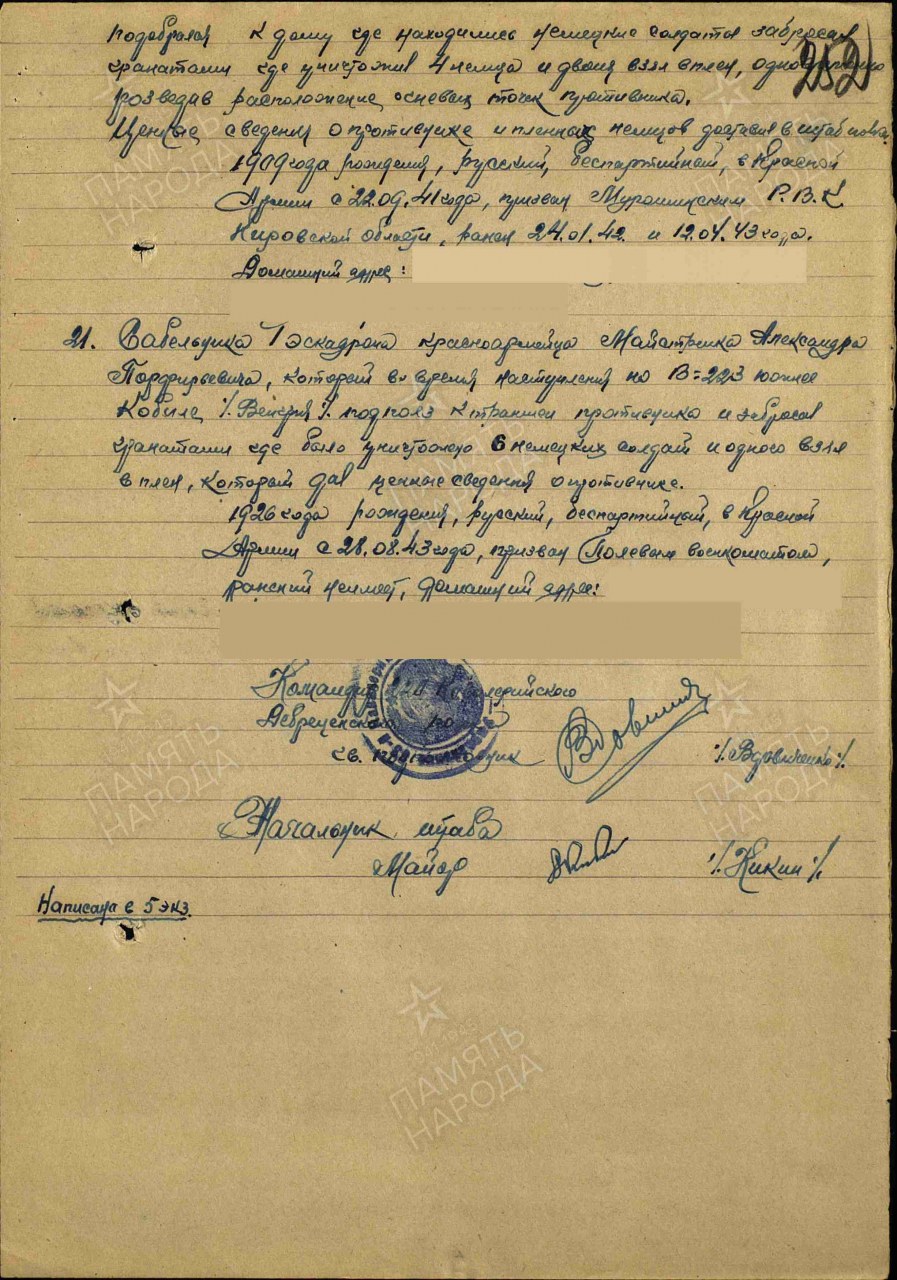 252
подобрался к дому где находились немецкие солдаты забросал
гранатами где уничтожив 4 немца и двоих взял в плен, одновременно
розведав расположение огневых точек противника.
Ценные сведения о противнике и пленных немцов доставил в штаб полка.
1909 года рождения, русский, беспартийный, в Красной
Армии с 22.09.41 года, призван Мурашинским Р.В.К.
Кировской области, ранен 24.01.42. и 12.04.43 года.
Домашний адрес:
21. Сабельника 1 эскадрона красноармейца Майстренка Александра
Порфирьевича, который во время наступления на В=223 южнее
Кобиле %Венгрия% подполз к траншеи противника и забросал
гранатами где было уничтожено 6 немецких солдат и одного взял
в плен, который дал ценные сведения о противнике.
1926 года рождения, русский, беспартийный, в Красной
Армии с 28.08.43 года, призван Полевым военкоматом,
ранений неимеет, домашний адрес:
Командир кавалерийского
Дебреценского
гв. подполковник %Вдовиченко%
Начальник штаба
Майор %Кикин%
Написана в 5 экз.
ПАМЯТЬ НАРОДА